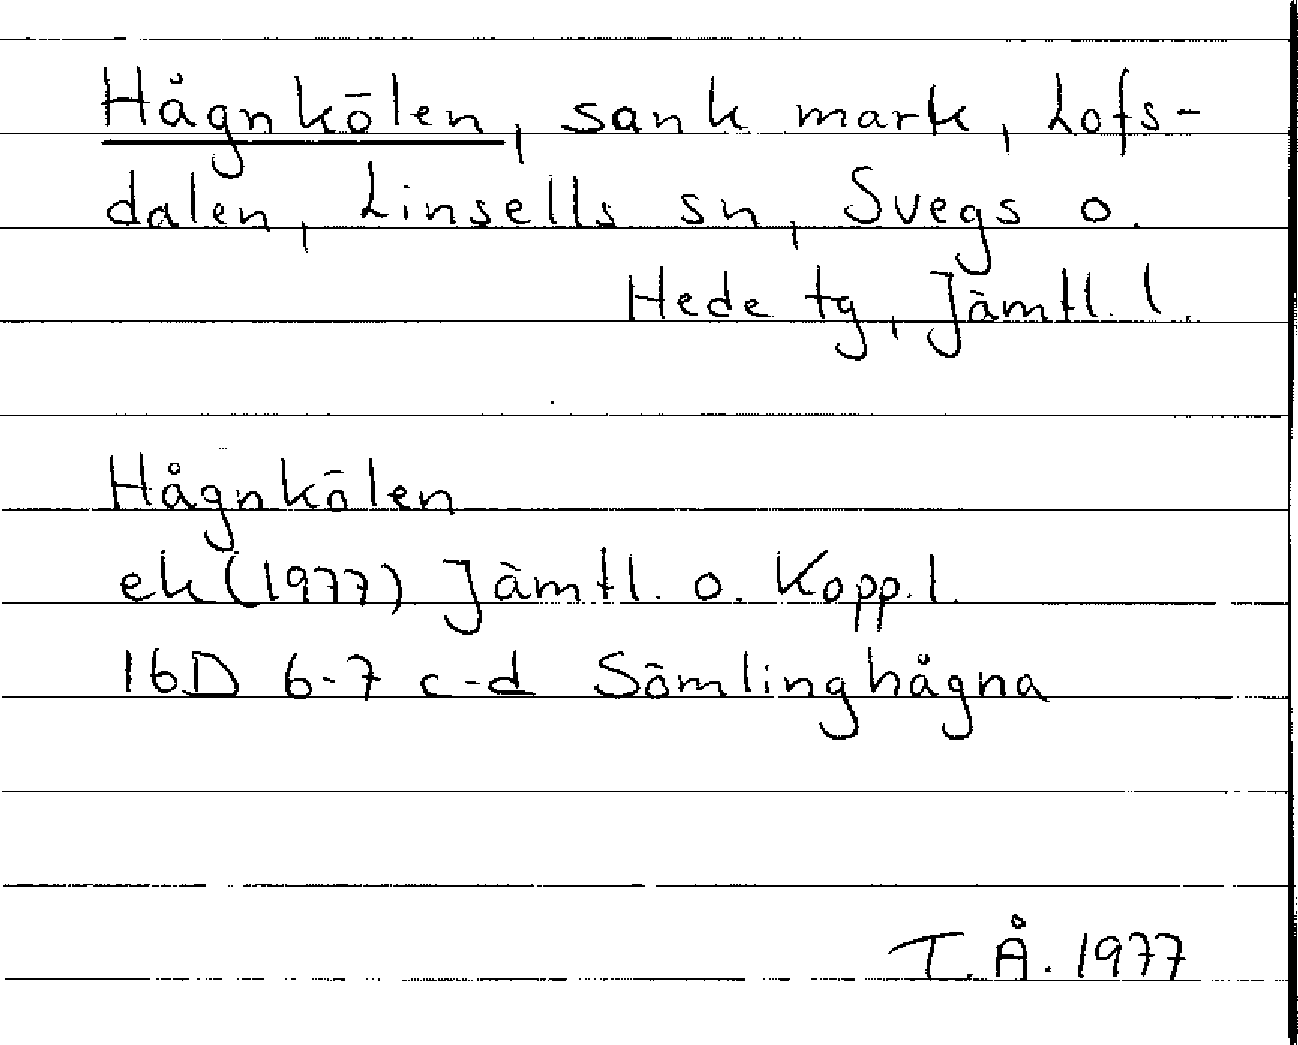 Hågnkölen, sank mark, Lofs-
dalen, Linsells sn, Svegs o.
Hede tg, Jämtl. l.
Hågnkölen
ek (1977) Jämtl. o. Kopp. l.
16D 6-7 c-d Sömlinghågna
T. Å. 1977